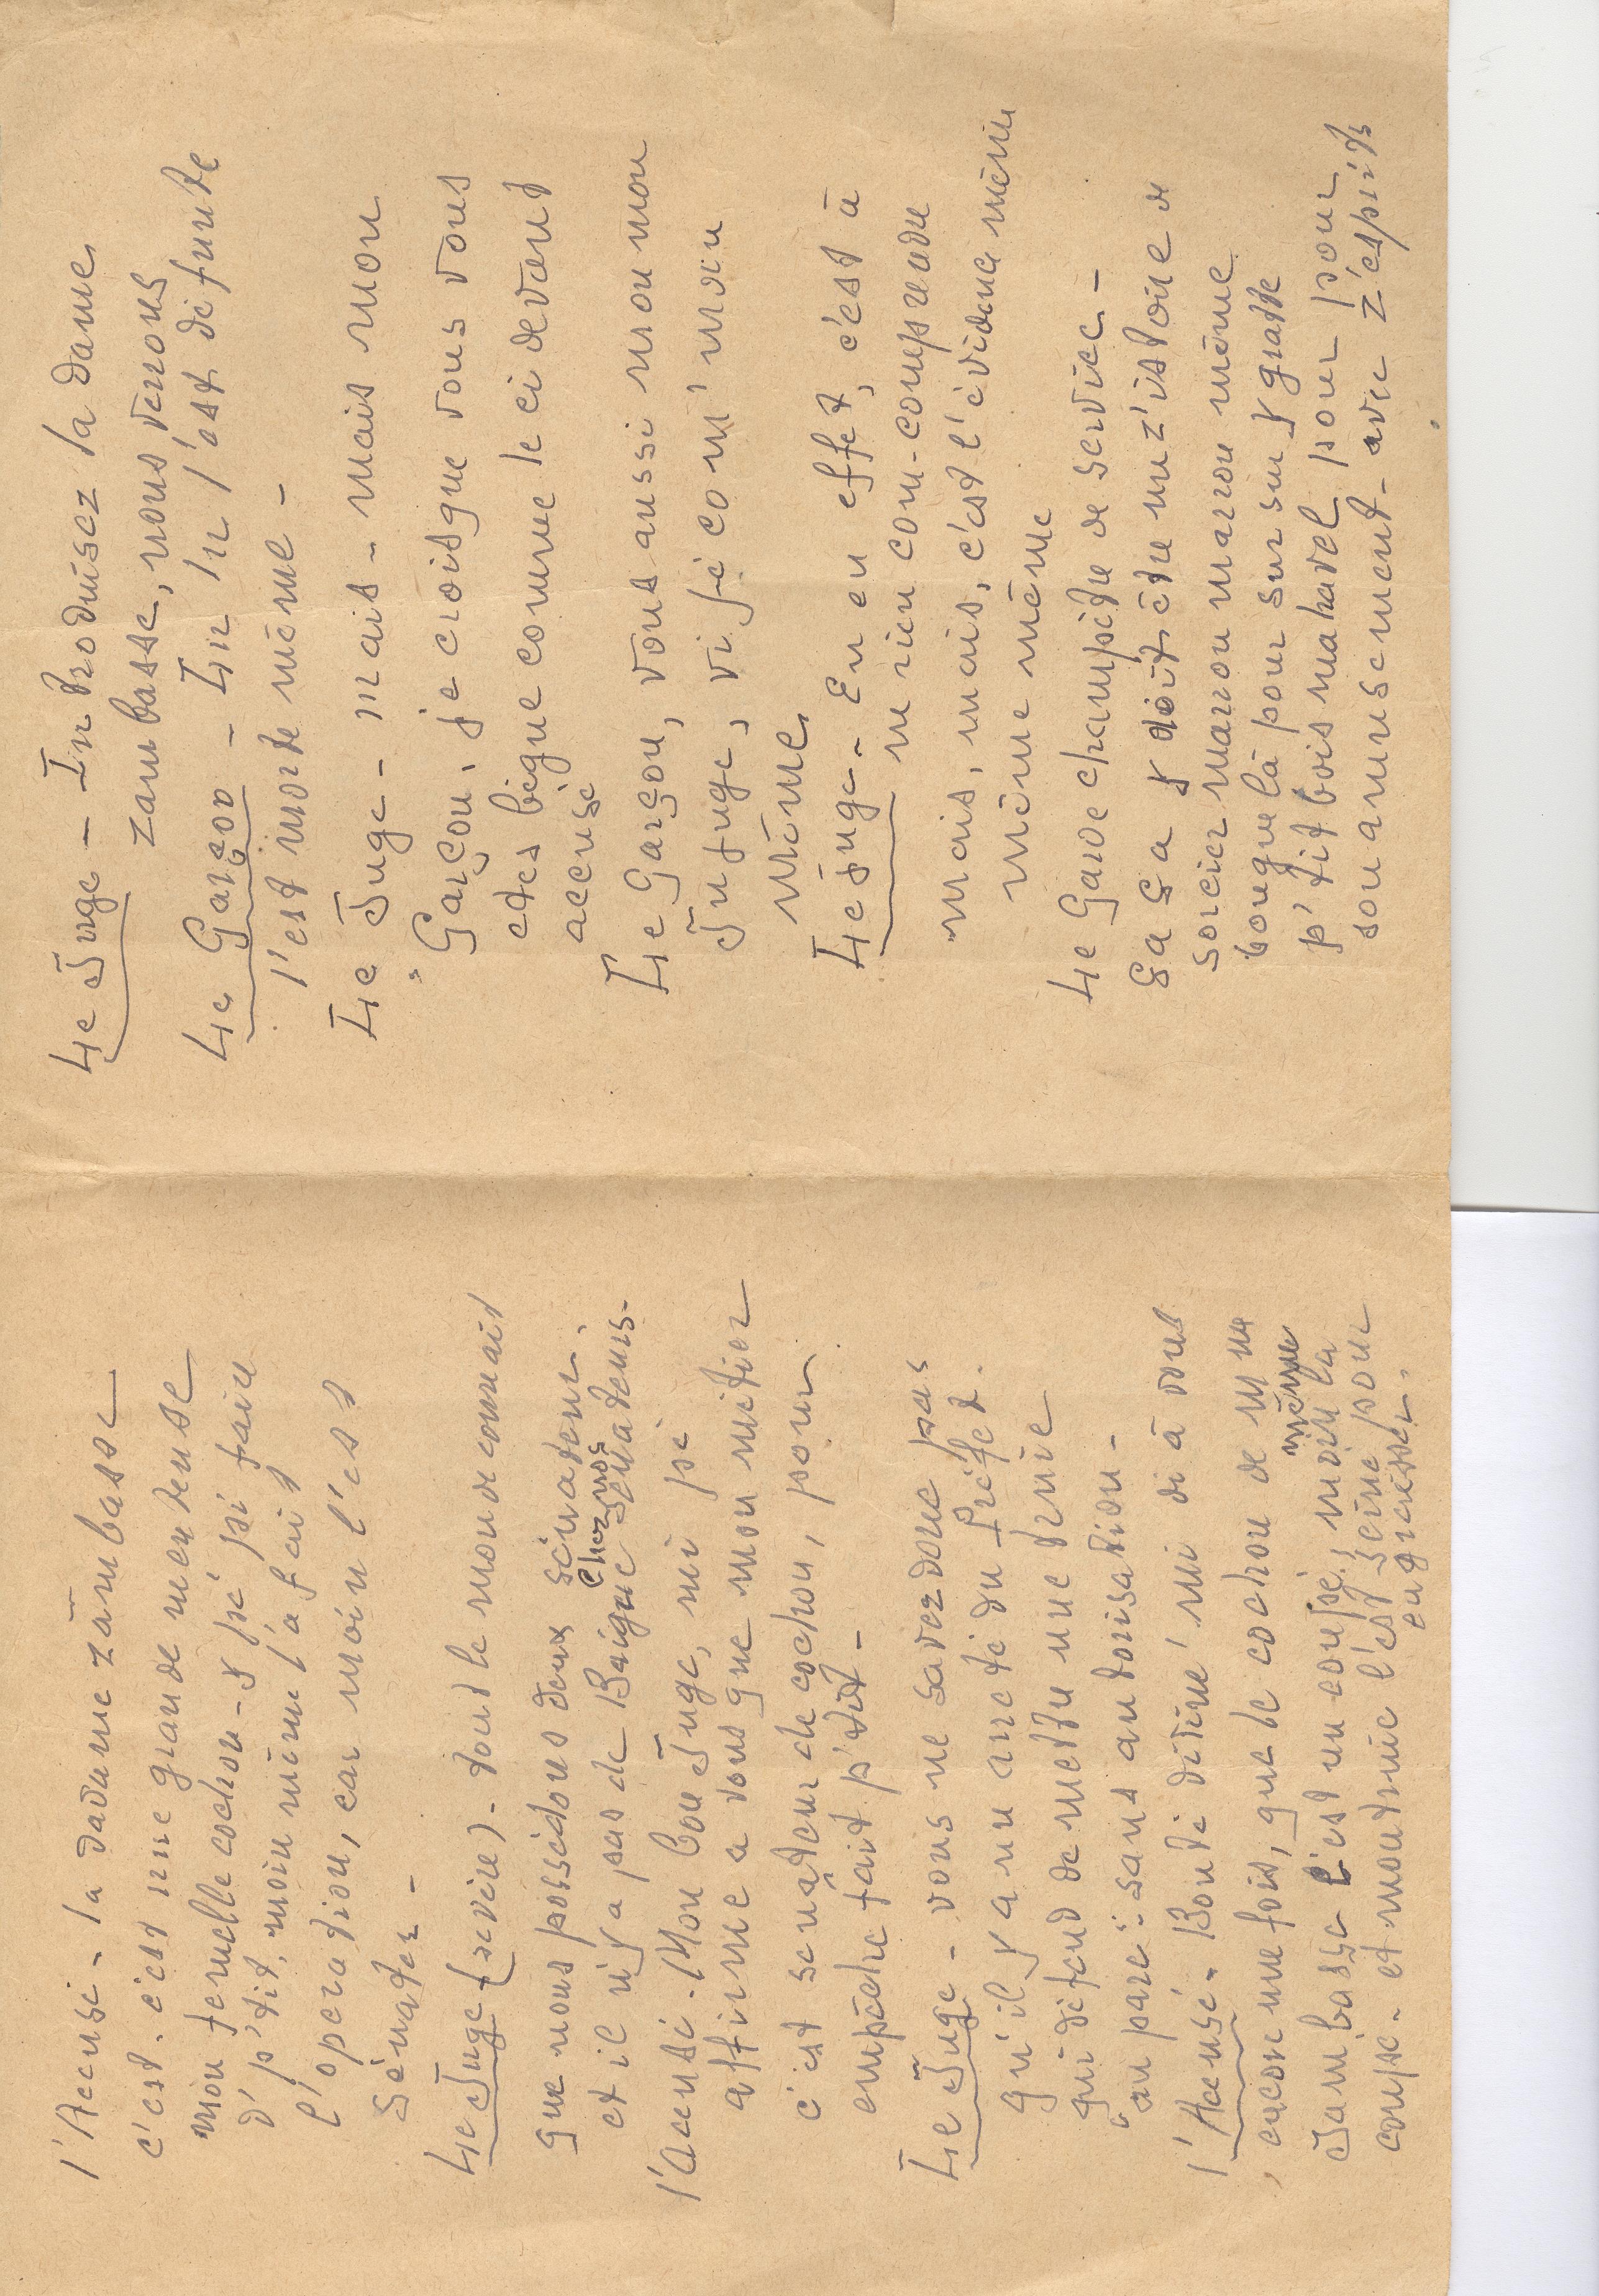 l'Accusé - la dadame zāmbasse
c'est. c'est une grande menteuse
mon femelle cochon - Y pé pi faire
d' p'tit. moin même l'a fait
l'opération, car moin l'est
sénater -
Le Juge (sévère) - tout le monde connait
que nous possédons deux sénateur.
et il n'y a pas de Baigne chez nos sénateurs -
l'Accusé. Mon bon Juge, mi pé
affirme a vous que mon métier
c'est senateur de cochon, pour
empêche fait p'tit -
Le Juge - vous ne savez donc pas
qu'il y a un arrêté du Préfet.
qui défend de mettre une truie
"an pare" sans autorisation -
l'Accusé - Bonté divine' mi di à vous
encore une fois, que le cochon de Mme
Jambasse l'est un coupé, moin la même
coupé - et mon truie l'est seine pour
engraisser.
Le Juge - Introduisez la dame
zambasse, nous verrons
Le Garçon - Li n l'est défunte
l'est morte même -
Le Juge - mais - mais mon
Garçon, je crois que vous vous
etes bègue comme le ci devant
accusé
Le Garçon, vous aussi mon mon
Juge, vi fé com' moin
même
Le Juge - En en effet, c'est à
n rien com-comprendre
mais, mais, c'est l'évidence même
même même
Le Garde champêtre de service -
Ga Ga Y doit être un z'istoire de
sorcier marron marron même
bougue là pour sur sur Y gratte
p'tit bois mahavel pour pour pour
son amusement - avec z'esprits